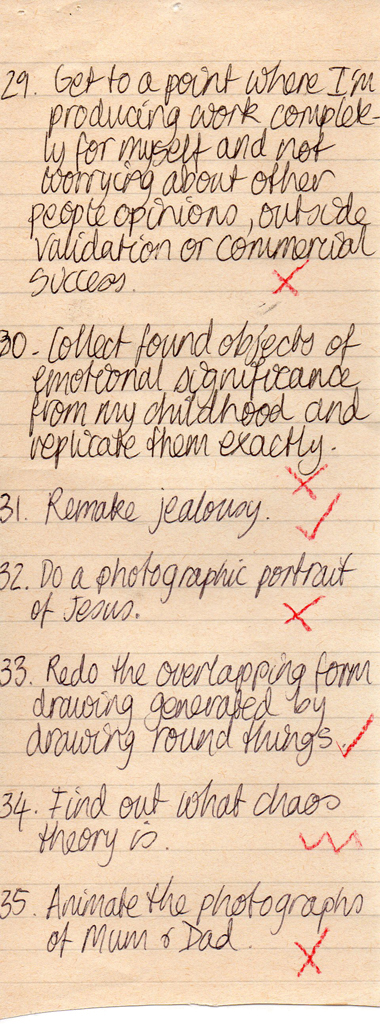 29. Get to a point where I'm
producing work complete-
ly for myself and not
worrying about other
people opinions, outside
validation or commercial
success.
30. Collect found objects of
emotional significance
from my childhood and
replicate them exactly.
31. Remake jealousy.
32. Do a photographic portrait
of Jesus.
33. Redo the overlapping form
drawing generated by
drawing round things.
34. Find out what chaos
theory is.
35. Animate the photographs
of Mum & Dad.